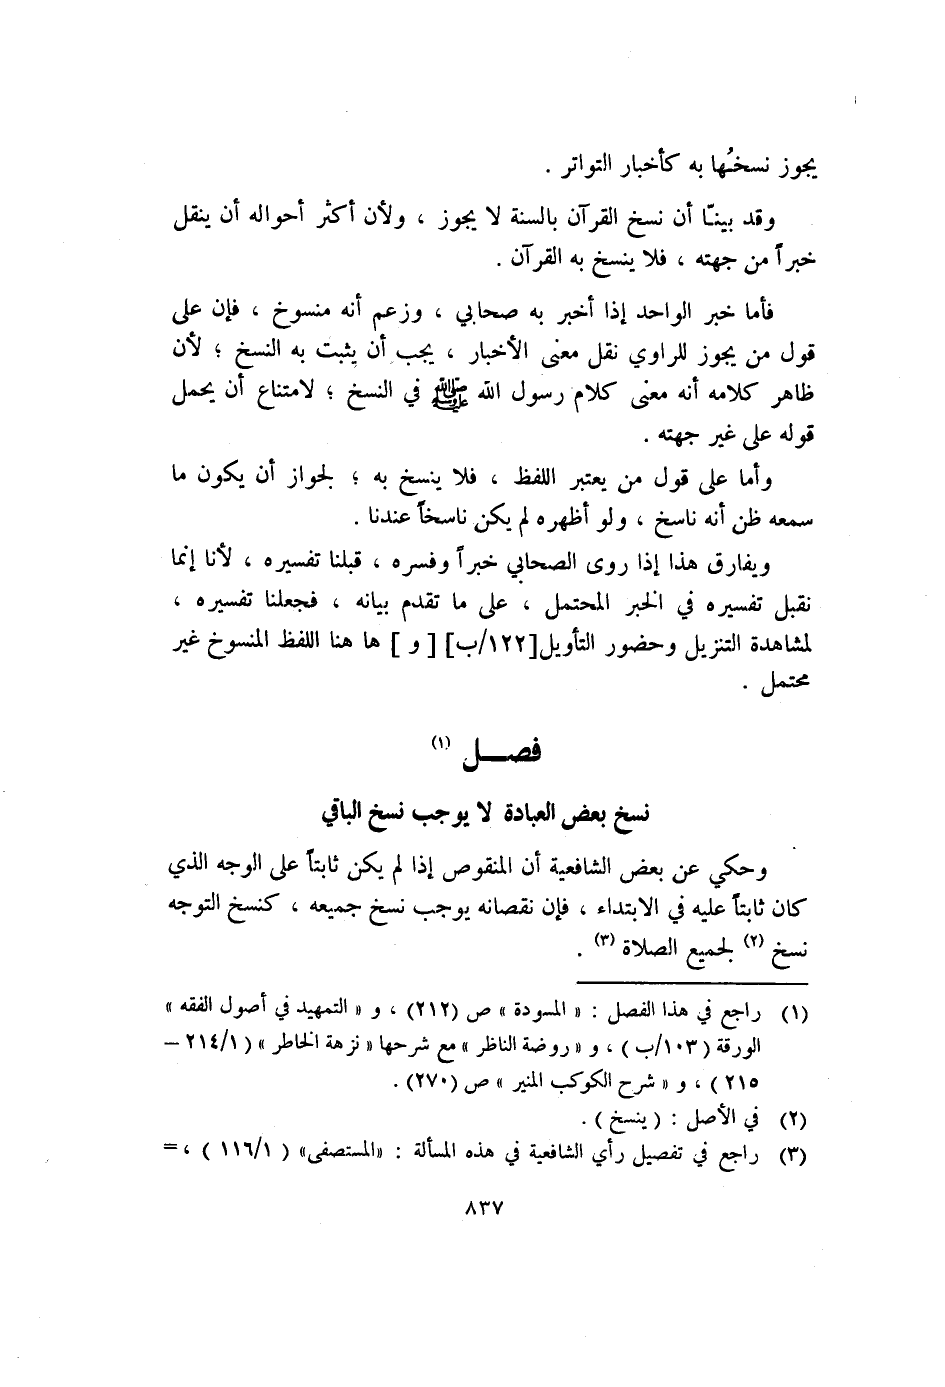 يجوز نسخُها به كأخبار التواتر .
وقد بينّا أن نسخ القرآن بالسنة لا يجوز ، ولأن أكثر أحواله أن ينقل
خبراً من جهته ، فلا ينسخ به القرآن .
فأما خبر الواحد إذا أخبر به صحابي ، وزعم أنه منسوخ ، فإن على
قول من يجوز للراوي نقل معنى الأخبار ، يجب أن يثبت به النسخ ؛ لأن
ظاهر كلامه أنه معنى كلام رسول الله ﷺ في النسخ ؛ لامتناع أن يحمل
قوله على غير جهته .
وأما على قول من يعتبر اللفظ ، فلا ينسخ به ؛ لجواز أن يكون ما
سمعه ظن أنه ناسخ ، ولو أظهره لم يكن ناسخاً عندنا .
ويفارق هذا إذا روى الصحابي خبراً وفسره ، قبلنا تفسيره ، لأنا إنما
نقبل تفسيره في الخبر المحتمل ، على ما تقدم بيانه ، فجعلنا تفسيره ،
لمشاهدة التنزيل وحضور التأويل[١٢٢/ب] [ و ] ها هنا اللفظ المنسوخ غير
محتمل .
فصـــل (١)
نسخ بعض العبادة لا يوجب نسخ الباقي
وحكي عن بعض الشافعية أن المنقوص إذا لم يكن ثابتاً على الوجه الذي
كان ثابتاً عليه في الابتداء ، فإن نقصانه يوجب نسخ جميعه ، كنسخ التوجه
نسخ (٢) لجميع الصلاة (٣) .
(١) راجع في هذا الفصل : « المسودة » ص (٢١٢) ، و « التمهيد في أصول الفقه »
الورقة ( ١٠٣/ب ) ، و « روضة الناظر » مع شرحها « نزهة الخاطر » ( ٢١٤/١ –
٢١٥ ) ، و « شرح الكوكب المنير » ص (٢٧٠) .
(٢) في الأصل : ( ينسخ ) .
(٣) راجع في تفصيل رأي الشافعية في هذه المسألة : «المستصفى» ( ١١٦/١ ) ، =
٨٣٧